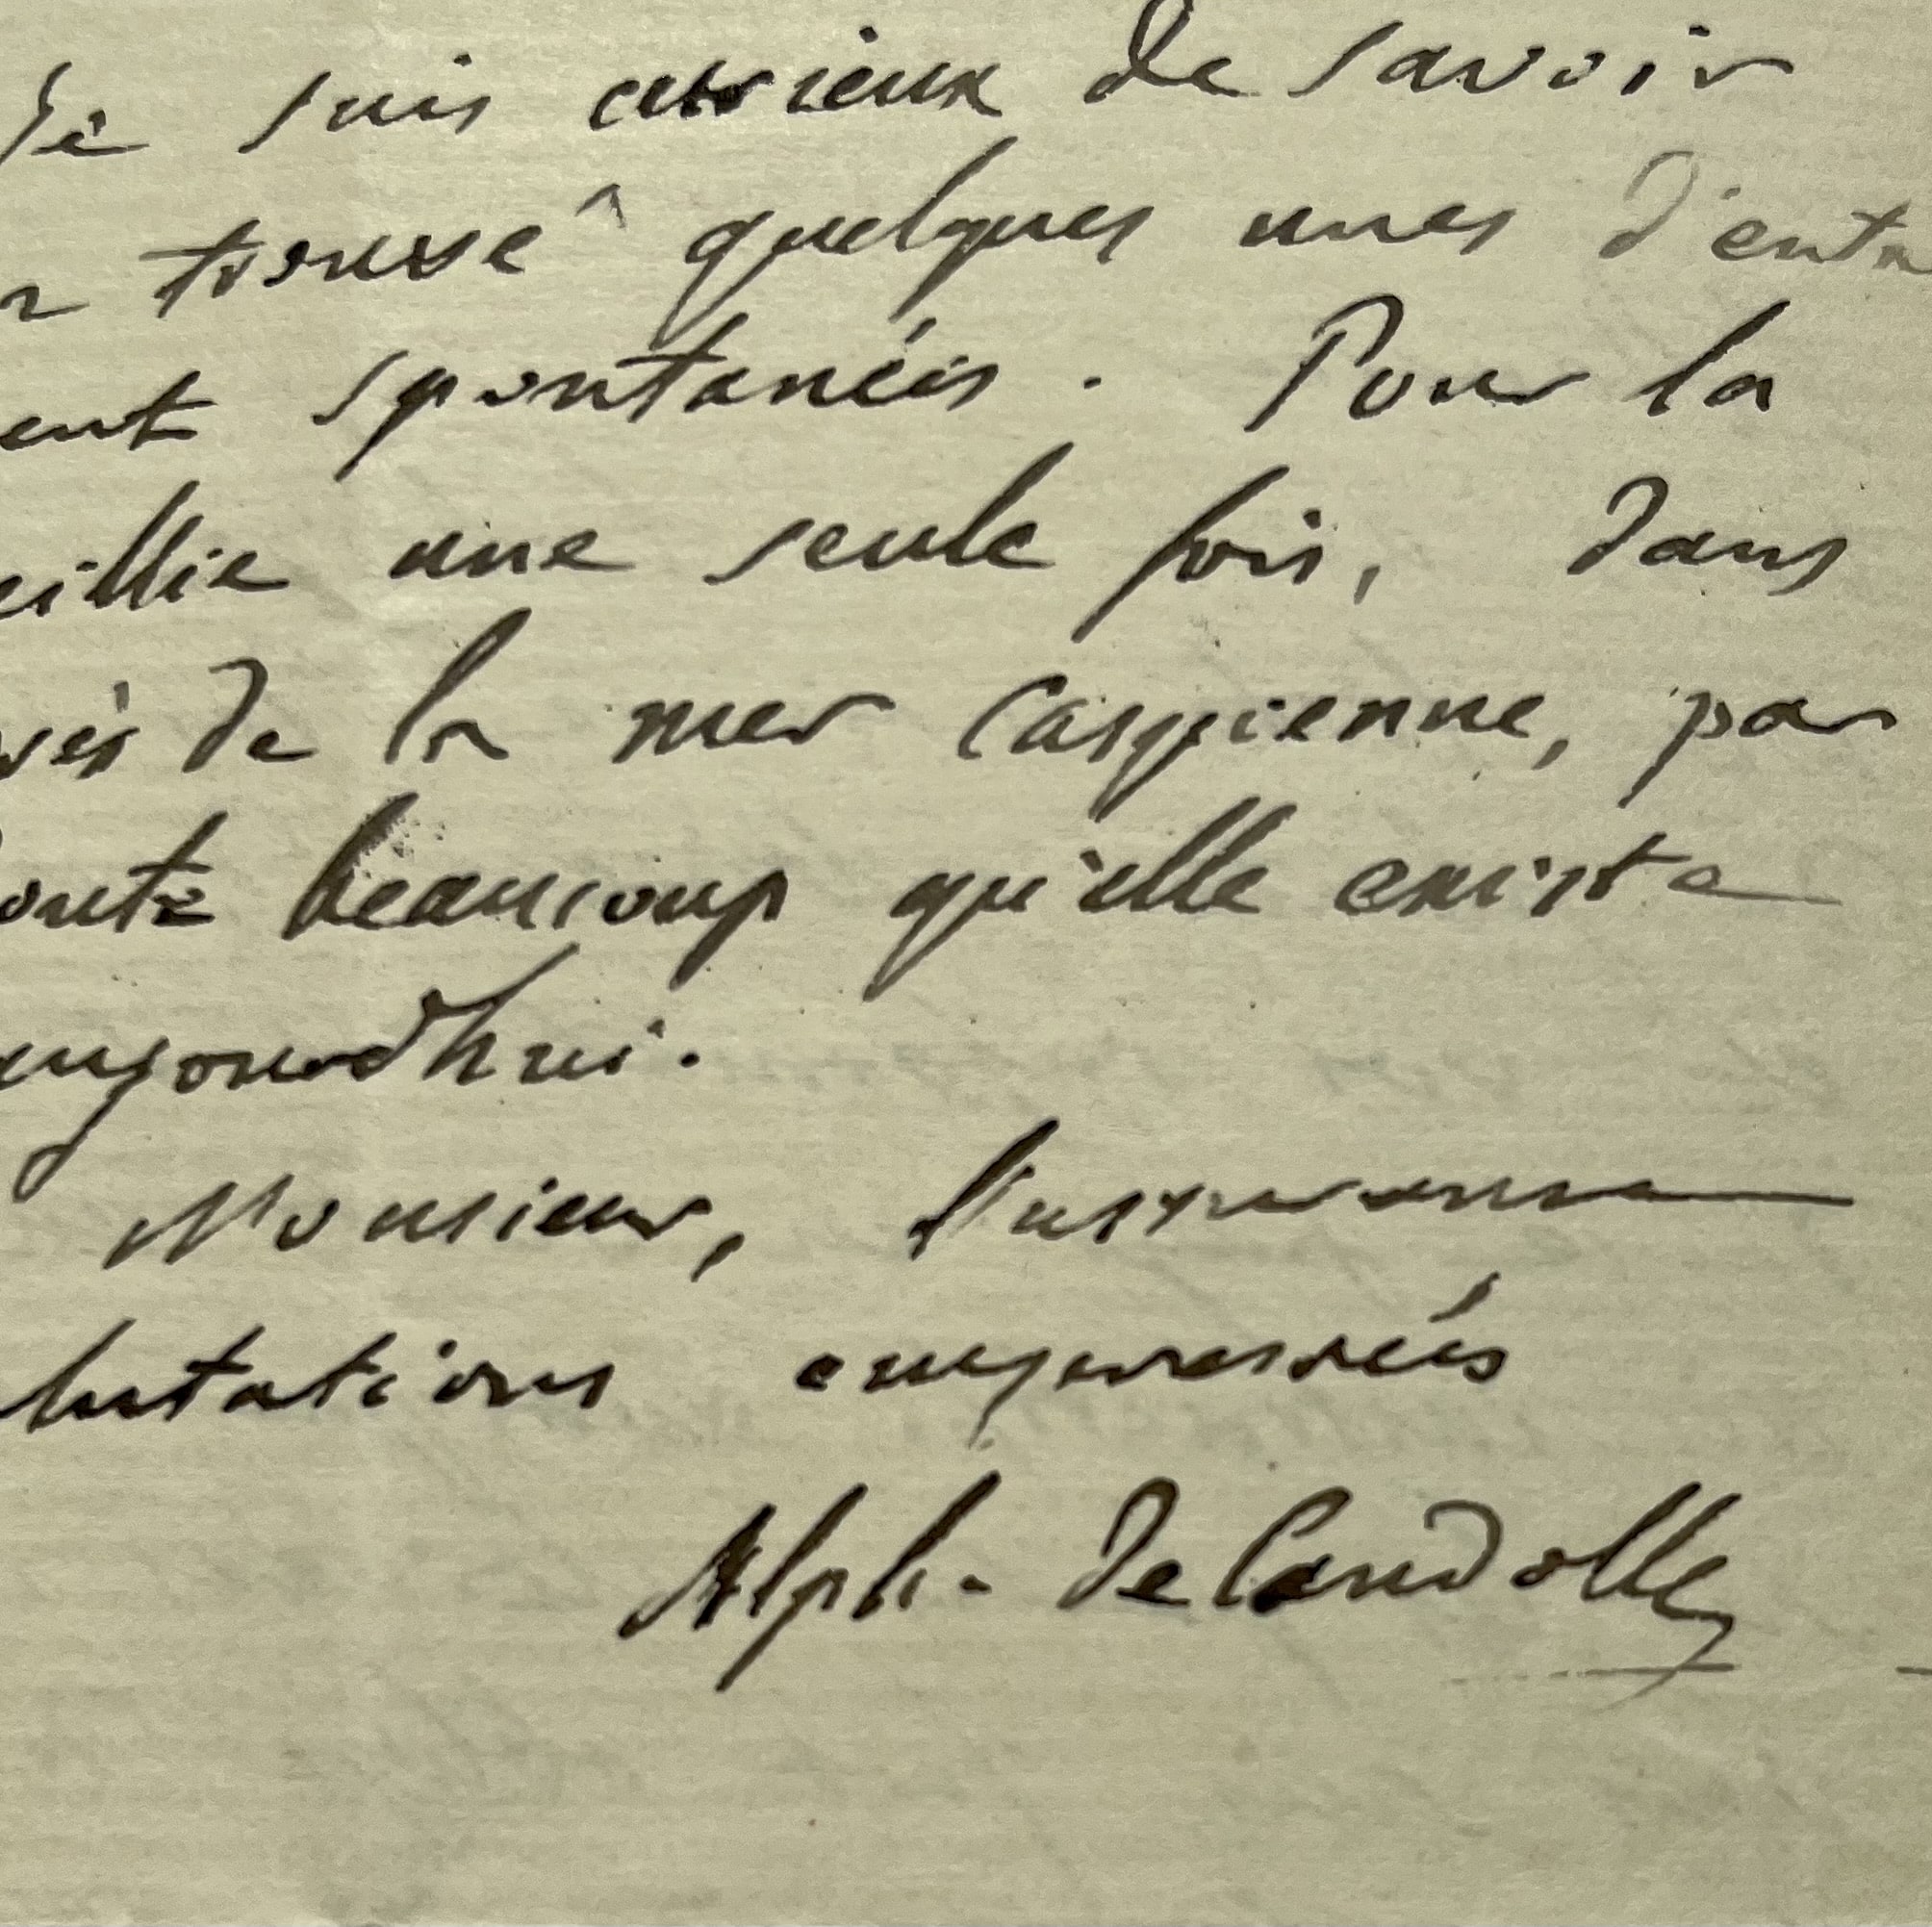 Je suis curieux de savoir
trouvé quelques unes d'entre
ent spontanées. Pour la
eillie une seule fois, dans
près de la mer Caspienne, par
oute beaucoup qu'elle existe
aujourdhui.
Monsieur, l'assurance
lutations empressées
Alph. DeCandolle